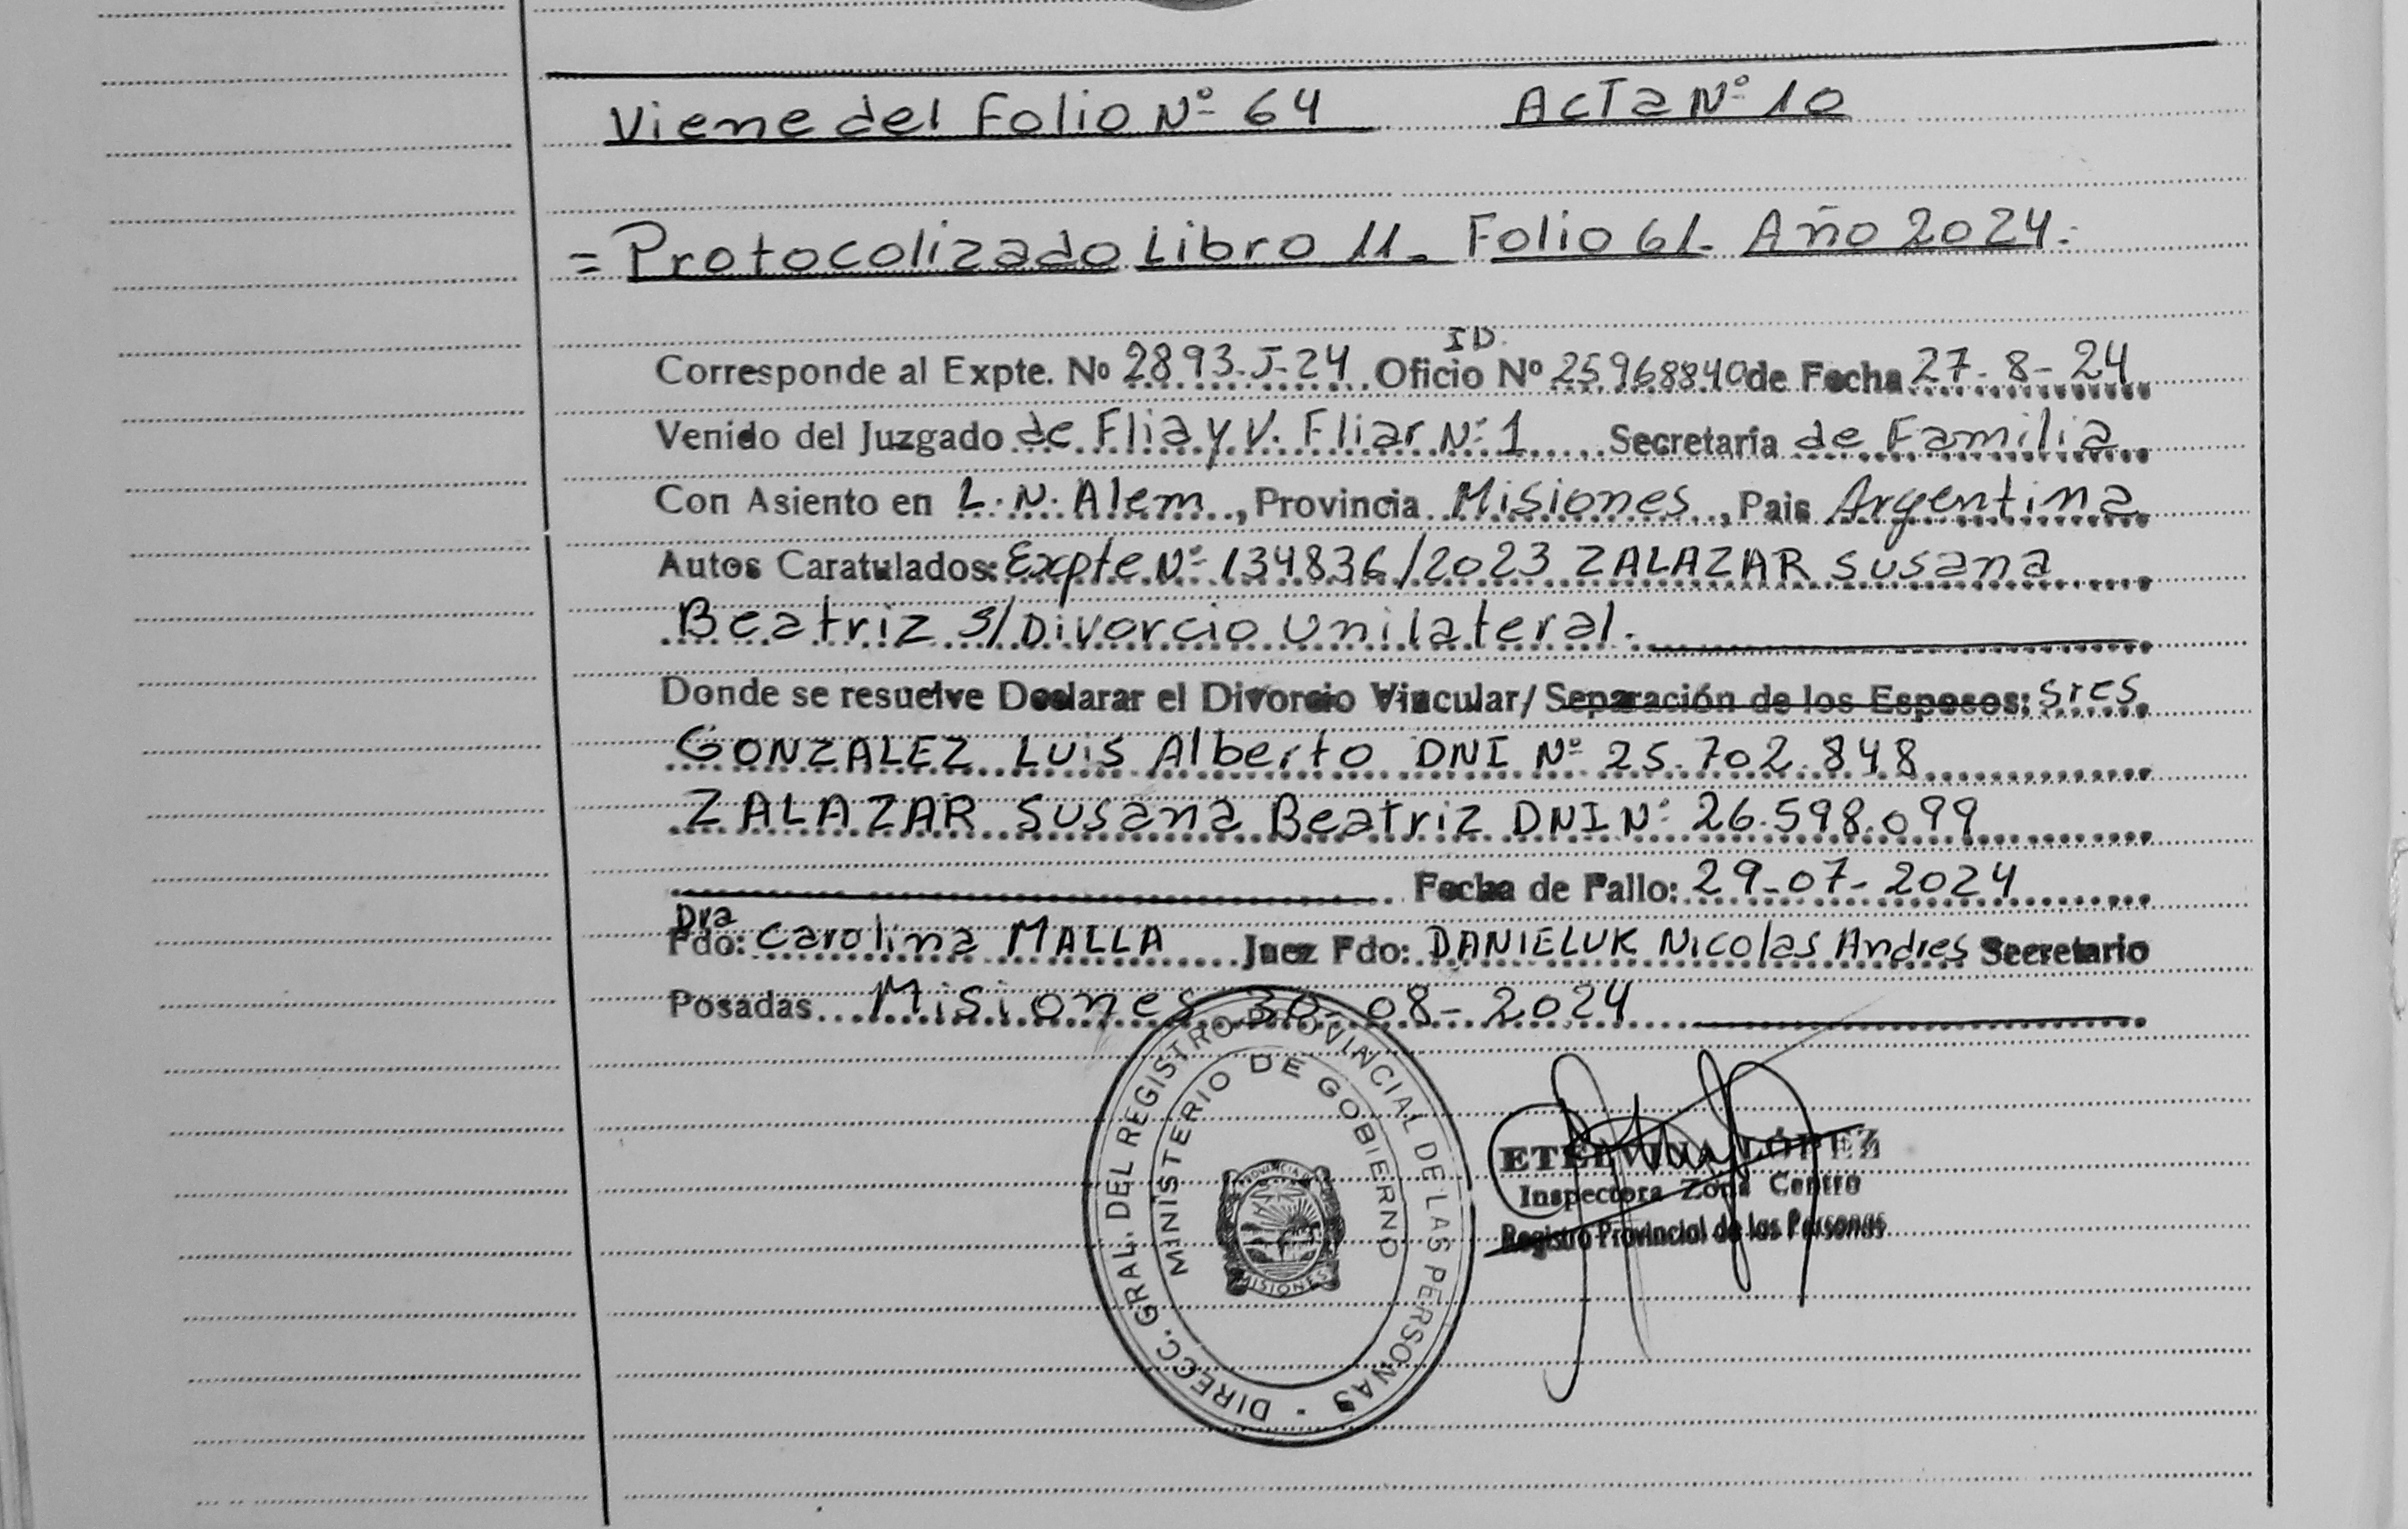 Viene del Folio Nº 64 Acta Nº 10
= Protocolizado Libro 11- Folio 61- Año 2024.-
ID.
Corresponde al Expte. Nº 2893-J-24 Oficio Nº 25968840 de Fecha 27-8-24
Venido del Juzgado de Flia y V. Fliar Nº 1 Secretaría de Familia
Con Asiento en L.N. Alem, Provincia Misiones, Pais Argentina
Autos Caratulados: Expte Nº 134836/2023 ZALAZAR Susana
Beatriz s/Divorcio Unilateral.
Donde se resuelve Declarar el Divorcio Vincular/Separación de los Esposos: sres
GONZALEZ Luis Alberto DNI Nº 25.702.848
ZALAZAR Susana Beatriz DNI Nº 26.598.099
Fecha de Fallo: 29-07-2024
Dra
Fdo: Carolina MALLA Juez Fdo: DANIELUK Nicolas Andres Secretario
Posadas Misiones 30-08-2024
DIRECC. GRAL. DEL REGISTRO PROVINCIAL DE LAS PERSONAS -
MINISTERIO DE GOBIERNO
PROVINCIA DE
MISIONES
ETELVINA LÓPEZ
Inspectora Zona Centro
Registro Provincial de las Personas